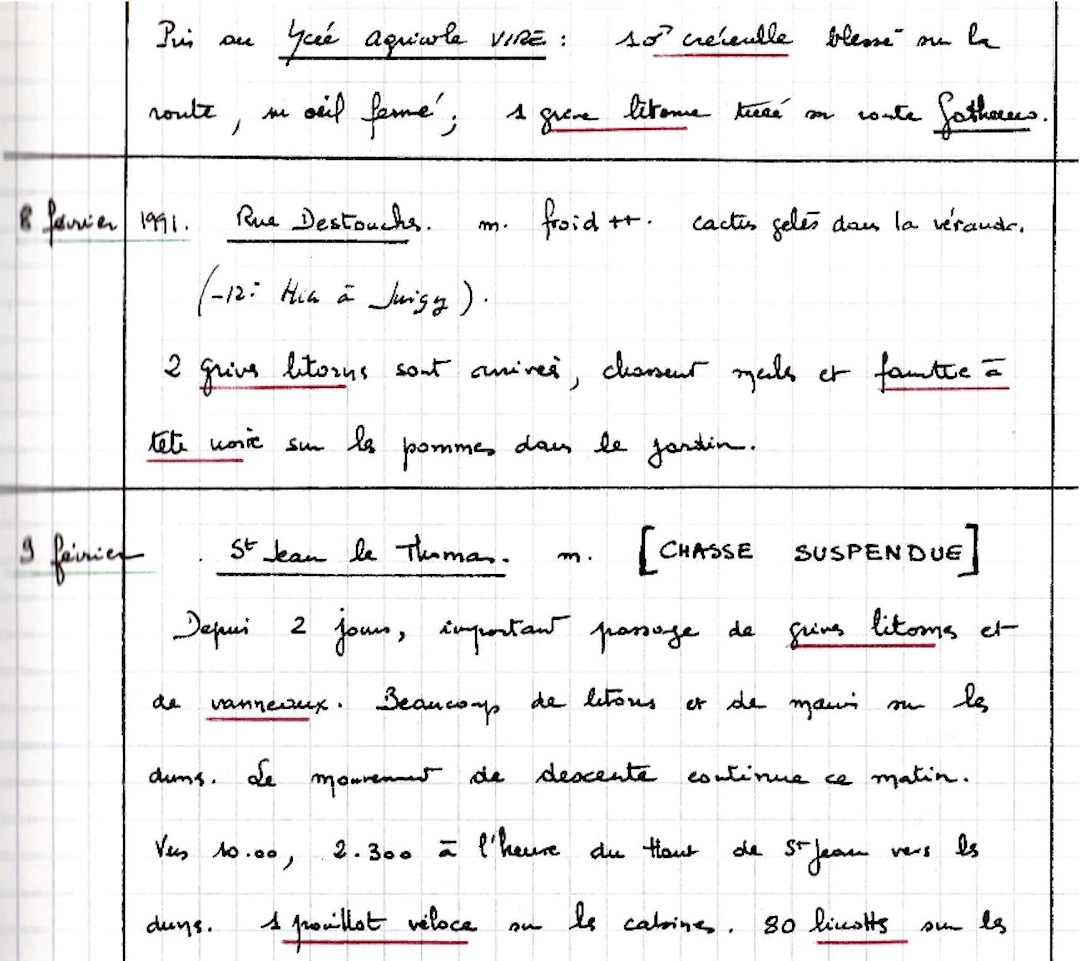 Puis au lycée agricole VIRE : 1♂ crécerelle blessé sur la
route, un œil fermé ; 1 grive litorne tuée sur route Gathemo.
8 février 1991. Rue Destouches. m. froid ++. cactus gelés dans la véranda.
(-12° Hia à Juvigy).
2 grives litornes sont arrivées, chassent merles et fauvette à
tête noire sur les pommes dans le jardin.
9 février . St Jean le Thomas. m. [CHASSE SUSPENDUE]
Depuis 2 jours, important passage de grives litornes et
de vanneaux. Beaucoup de litornes et de mauvis sur les
dunes. Le mouvement de descente continue ce matin.
Vers 10.00, 2.300 à l'heure du Haut de St Jean vers les
dunes. 1 pouillot véloce sur les cabines. 80 linottes sur les